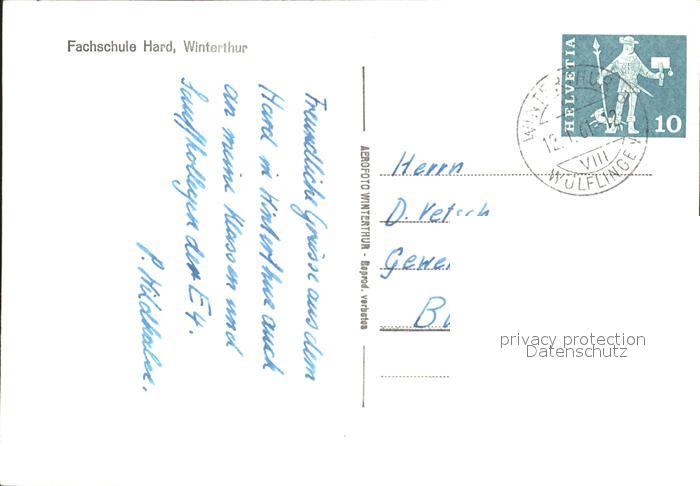 Fachschule Hard, Winterthur
Freundliche Grüsse aus dem
Hard in Winterthur auch
an meine Klassen und
Lauffkollegen der E4.
P. Wildhaber.
AEROFOTO WINTERTHUR - Reprod. verboten
HELVETIA
10
WINTERTHUR
VIII
WÜLFLINGEN
Herrn
D. Vetsch
Gewe
B
privacy protection
Datenschutz